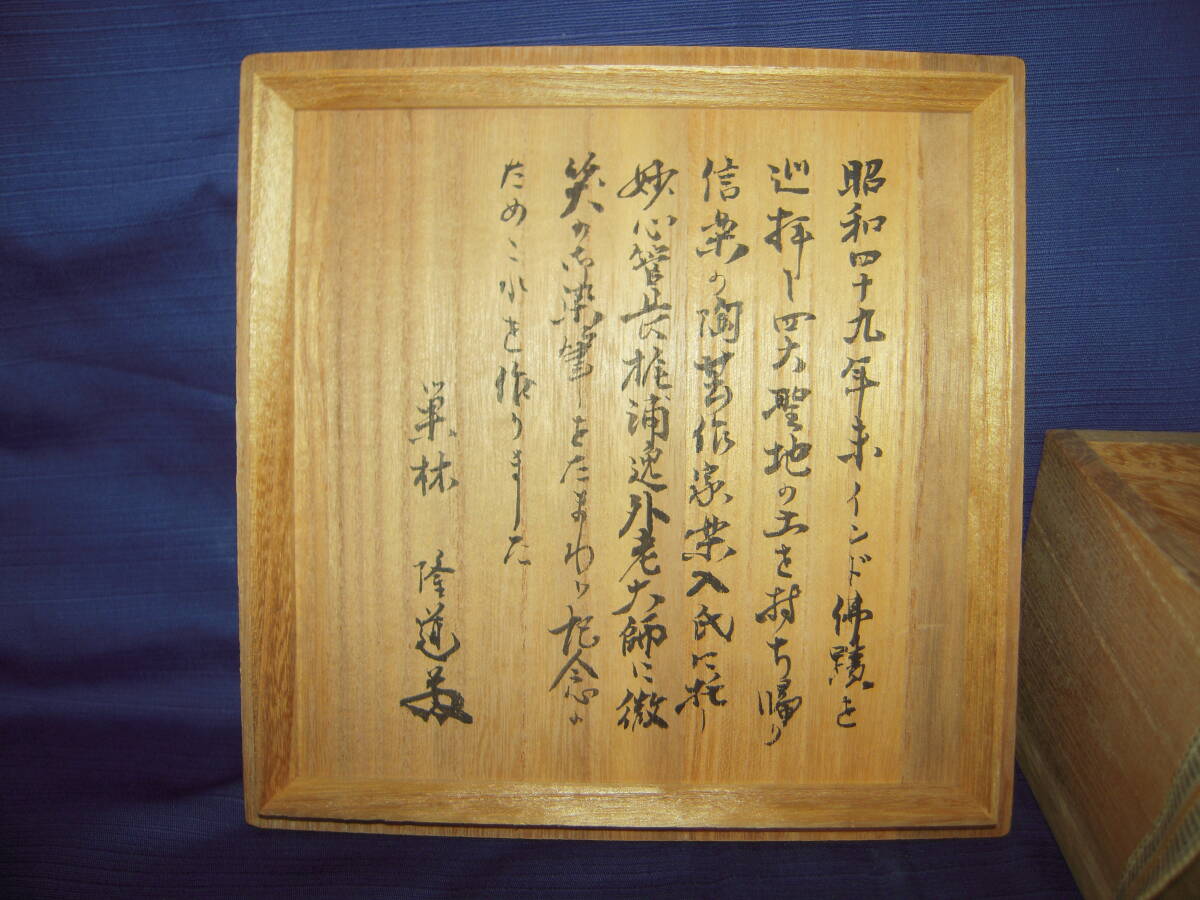 昭和四十九年末インド佛蹟を
巡拝し四大聖地の土を持ち帰り
信楽の陶芸作家楽入氏に托し
妙心管長梶浦逸外老大師に微
笑の御染筆をたまわり記念の
ためこれを作りました
巣林 隆道